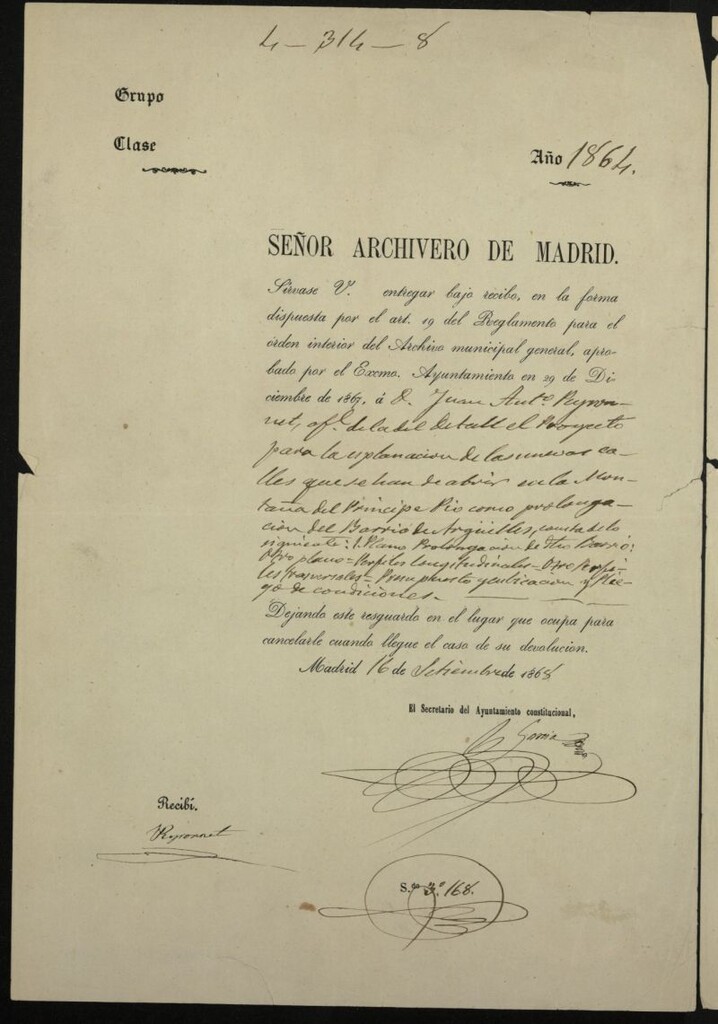 4-314-8
Grupo
Clase
Año 1864.
SEÑOR ARCHIVERO DE MADRID.
Sírvase V. entregar bajo recibo, en la forma
dispuesta por el art. 19 del Reglamento para el
órden interior del Archivo municipal general, apro-
bado por el Excmo. Ayuntamiento en 29 de Di-
ciembre de 1867, á D. Juan Antº Peyron-
net, ofl. de la del Detall el Proyecto
para la esplanacion de las nuevas ca-
lles que se han de abrir en la Mon-
taña del Principe Pio como prolonga-
cion del Barrio de Argüelles, consta de lo
siguiente: 1. Plano Prolongacion de dho Barrio:
Otro plano = Perfiles longitudinales = Otro Perfi-
les trasversales = Presupuesto y cubicacion y Plie-
go de condiciones.
Dejando este resguardo en el lugar que ocupa para
cancelarle cuando llegue el caso de su devolucion.
Madrid 16 de Setiembre de 1868
El Secretario del Ayuntamiento constitucional,
Recibí.
Peyronnet
S.on 3.º 168.